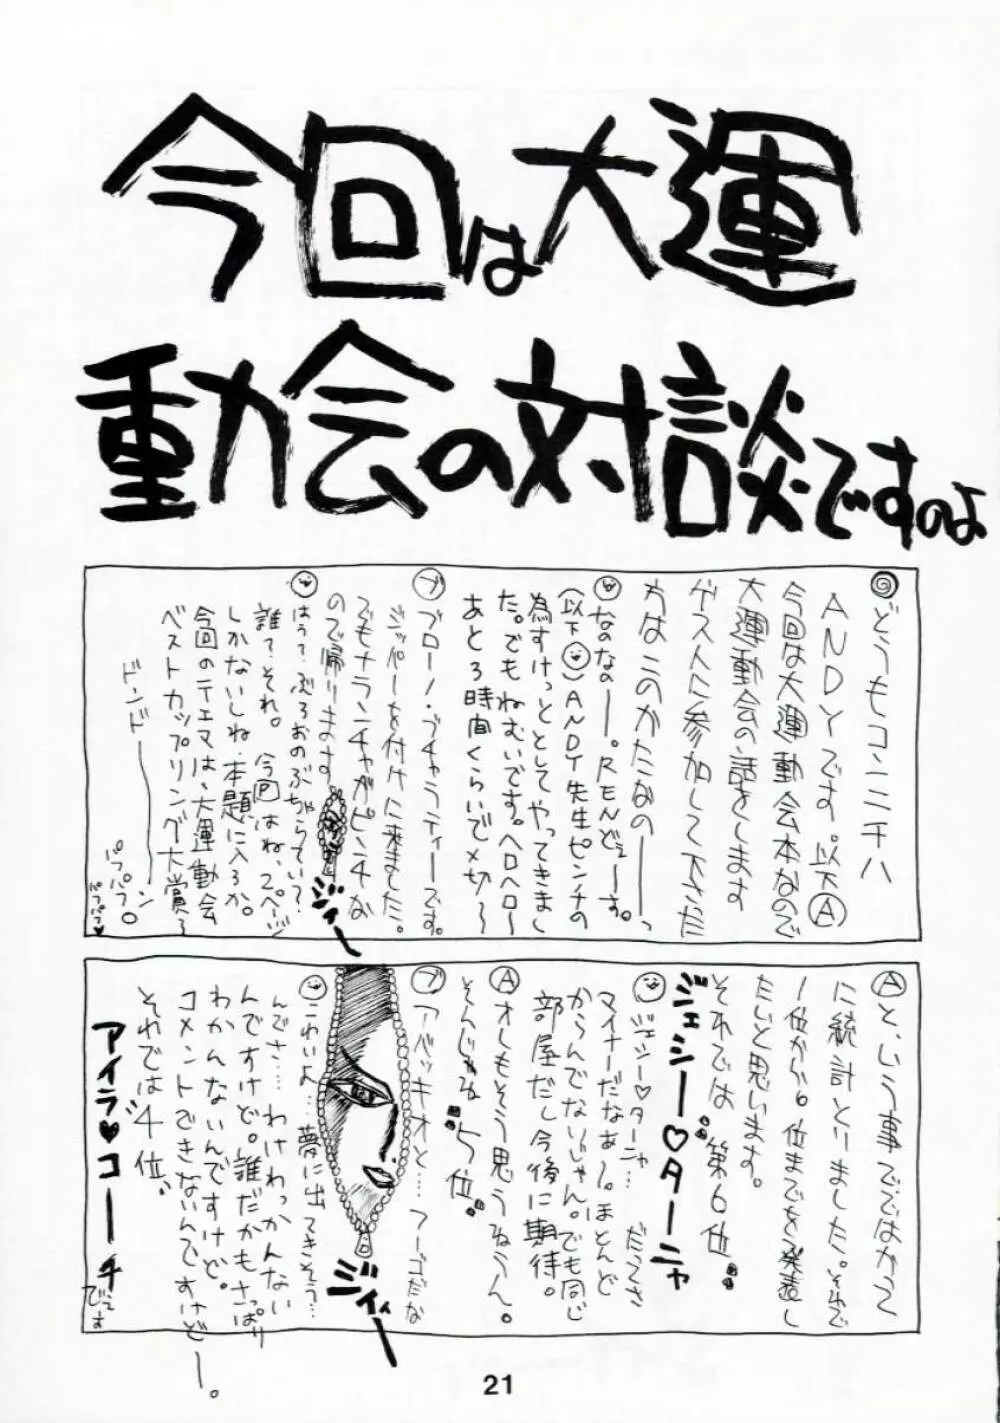 今回は大運
動会の対談ですのよ
◎どうもコンニチハ
ANDYです。以下Ⓐ
今回は大運動会本なので
大運動会の話をします
ゲストに参加して下さた
方はこのかたなのーーっ
なのなのー。RENどぇーす。
(以下 )ANDY先生ピンチの
為すけっととしてやってきまし
た。でもねむいです。ヘロヘロ〜
あと3時間くらいで〆切〜
ブ ブローノ・ブチャラティーです。
ジッパーを付けに来ました。
でもナランチャがピンチな
ので帰ります
ジィー
はうて、ぶろおのぶちゃらてぃて?
誰て、それ。今回はね、2ページ
しかないしね、本題に入ろか。
今回のテーマは、大運動会
ベストカップリング大賞〜
ドンドーーン
パフパフ。
パフパフ♥
Ⓐと、いう事でではかって
に統計とりました。それで
1位から6位までを発表し
たいと思います。
それでは"第6位"
ジェシー♡ターニャ
ジェシー♡ターニャ…だってさ
マイナーだなぁー。ほとんど
からんでないじゃん。でも同じ
部屋だし今後に期待。
Ⓐオレもそう思うねうん。
そんじゃね"5位"
ブ アバッキオと…フーゴだな
ジィー
こわいよ…夢に出てきそう…
んでさ…わけわっかんない
んですけど。誰だかもさっぱり
わかんないんですけど。
コメントできないんですけどー。
それでは"4位"
アイラ♥コーチ
でてす
21